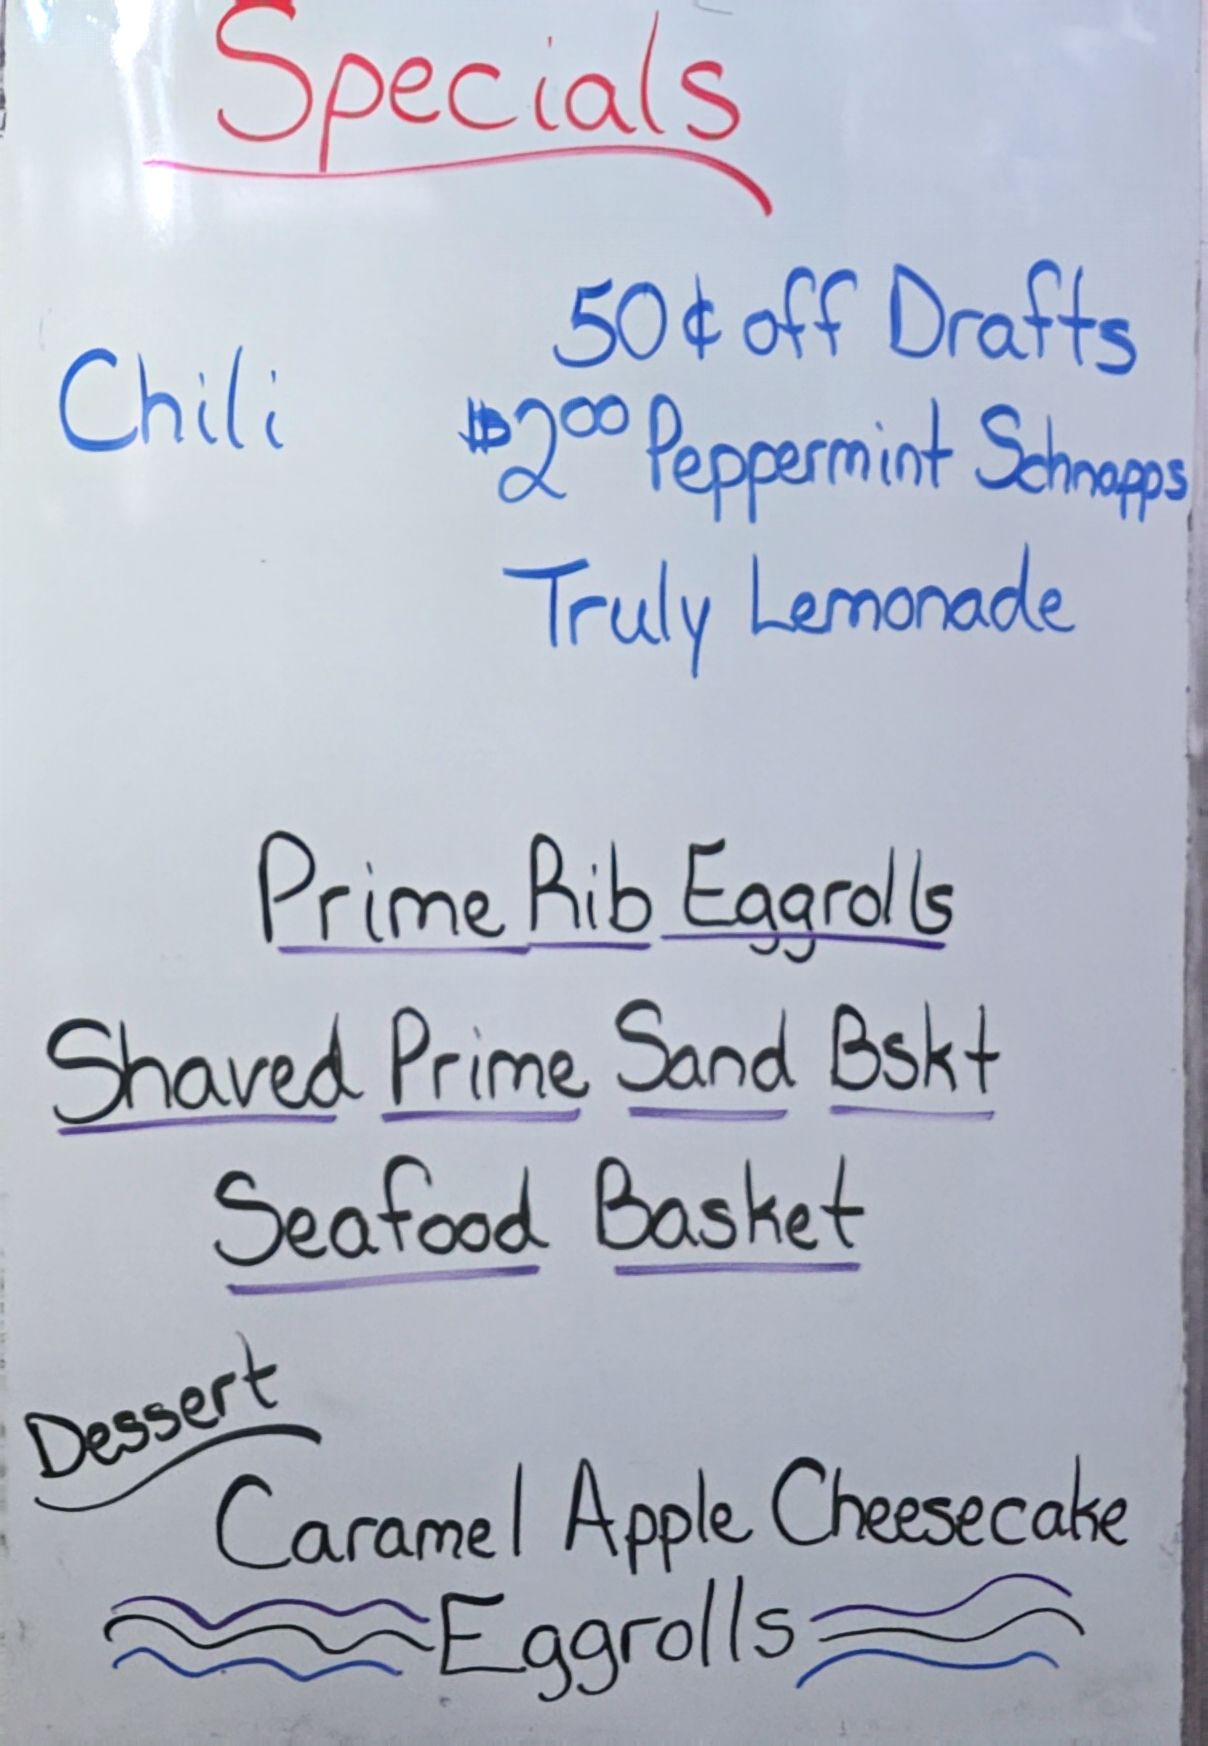 Specials
Chili
50¢ off Drafts
$2.00 Peppermint Schnapps
Truly Lemonade
Prime Rib Eggrolls
Shaved Prime Sand Bskt
Seafood Basket
Dessert
Caramel Apple Cheesecake
Eggrolls